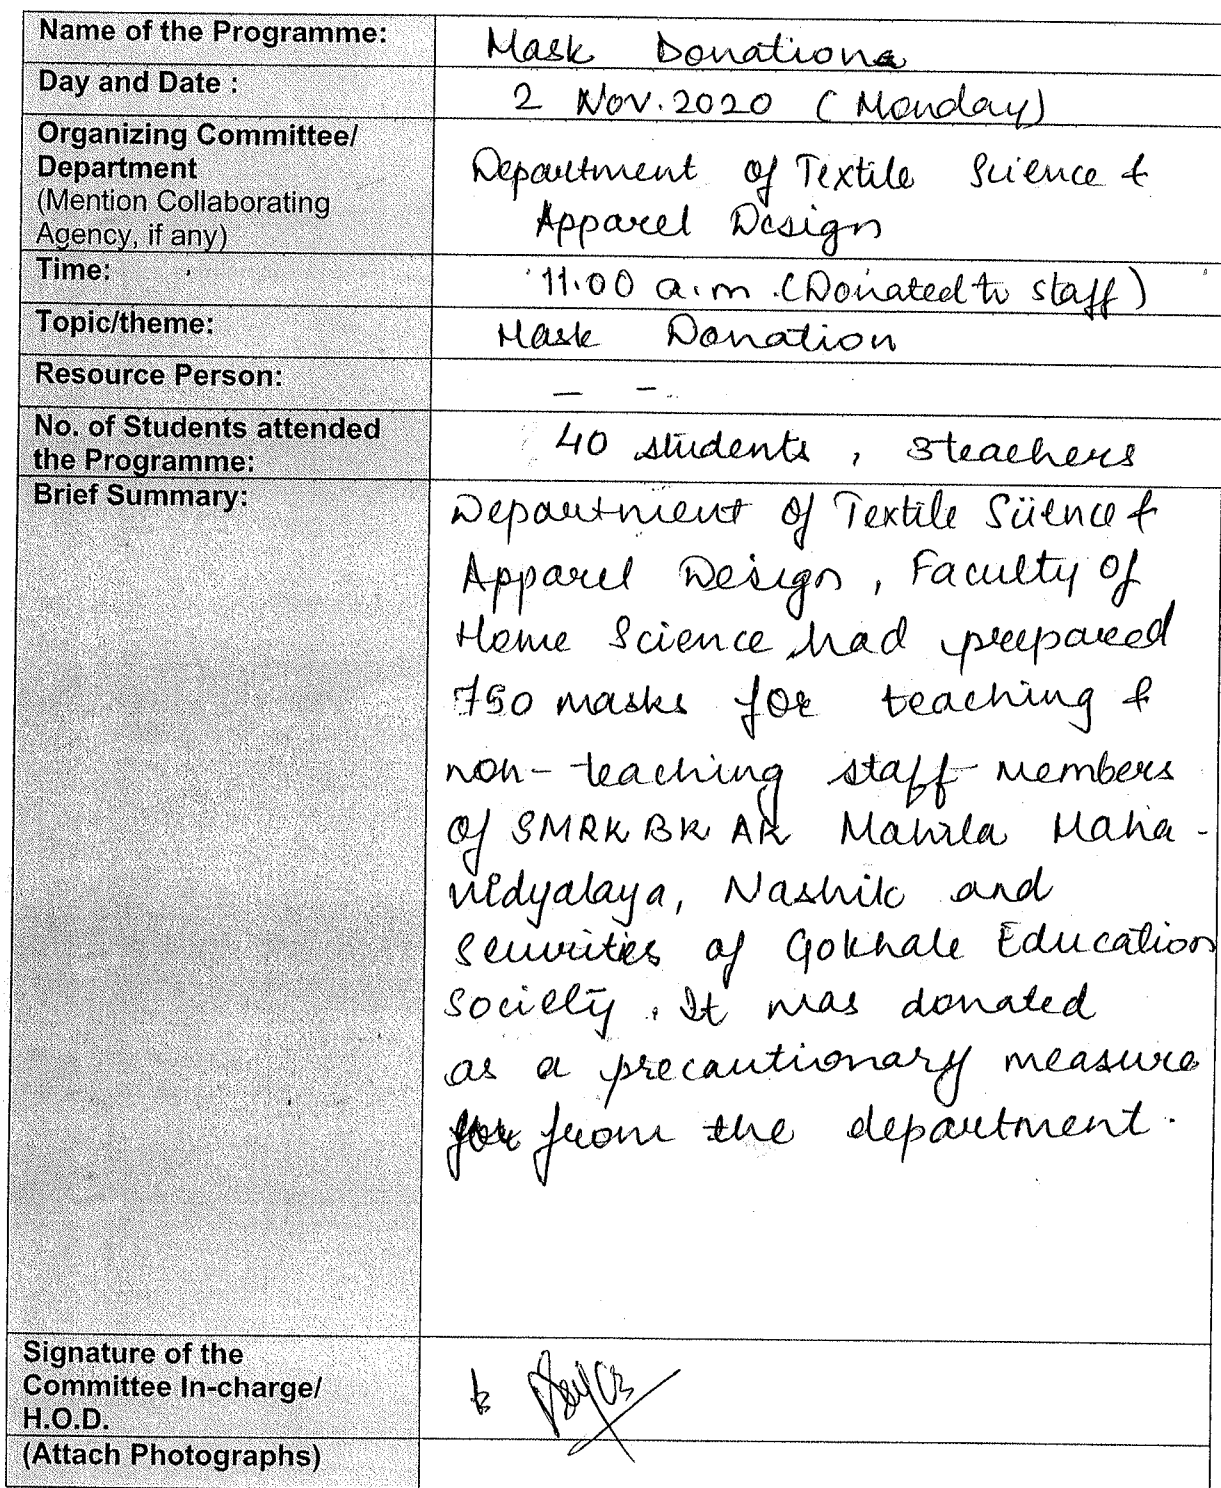 Name of the Programme: Mask Donation
Day and Date : 2 Nov. 2020 (Monday)
Organizing Committee/
Department
(Mention Collaborating
Agency, if any)
Department of Textile Science &
Apparel Design
Time: 11.00 a.m. (Donated to staff)
Topic/theme: Mask Donation
Resource Person: — –
No. of Students attended
the Programme:
40 students, 3 teachers
Brief Summary:
Department of Textile Science &
Apparel Design, Faculty of
Home Science had prepared
750 masks for teaching &
non-teaching staff members
of SMRK BK AK Mahila Maha-
vidyalaya, Nashik and
Securities of Gokhale Education
Society. It was donated
as a precautionary measure
from the department.
Signature of the
Committee In-charge/
H.O.D.
(Attach Photographs)